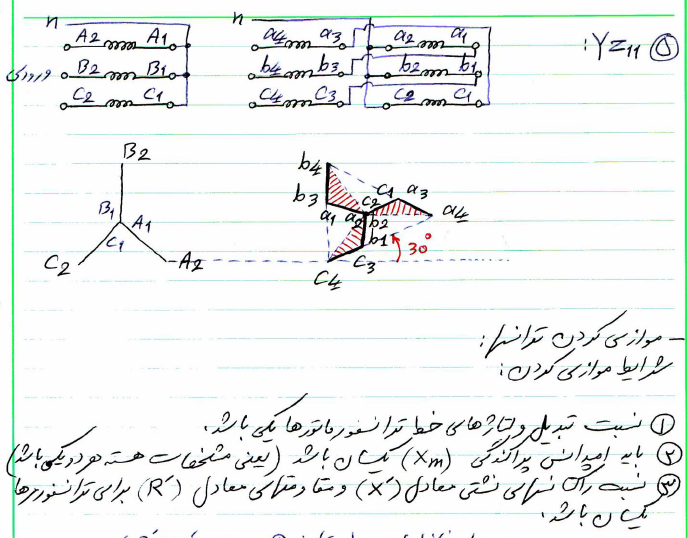 ۵) Yz11 :
n n
A2 A1 a4 a3 a2 a1
ورودی B2 B1 b4 b3 b2 b1
C2 C1 C4 C3 C2 C1
B2
b4
b3
C1 a3
C2
a4
B1 A1
a1 a2 b2
C1
b1
30°
C2 A2
C3
C4
- موازی کردن ترانسها:
شرایط موازی کردن:
۱) نسبت تبدیل ولتاژهای خط ترانسفورماتورها یکی باشد.
۲) باید امپدانس پراکندگی (Xm) یکسان باشد (یعنی مشخصات هسته هر دو یکی باشد)
۳) نسبت راکتنسهای نشتی معادل (X′) و مقاومتهای معادل (R′) برای ترانسفورمرها
یکسان باشد.